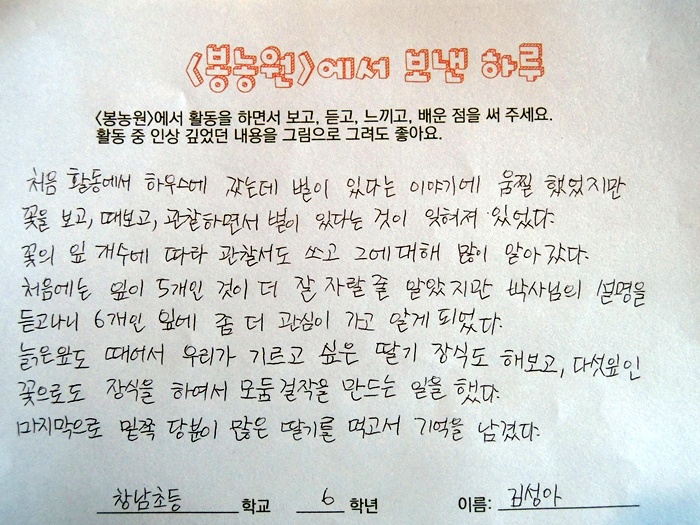 <봉농원>에서 보낸 하루
<봉농원>에서 활동을 하면서 보고, 듣고, 느끼고, 배운 점을 써 주세요.
활동 중 인상 깊었던 내용을 그림으로 그려도 좋아요.
처음 활동에서 하우스에 갔는데 벌이 있다는 이야기에 움찔 했었지만
꽃을 보고, 때보고, 관찰하면서 벌이 있다는 것이 잊혀져 있었다.
꽃의 잎 개수에 따라 관찰서도 쓰고 그에대해 많이 알아 갔다.
처음에는 잎이 5개인 것이 더 잘 자랄 줄 알았지만 박사님의 설명을
듣고나니 6개인 잎에 좀 더 관심이 가고 알게 되었다.
늙은잎도 떼어서 우리가 기르고 싶은 딸기 장식도 해보고, 다섯잎인
꽃으로도 장식을 하여서 모둠 걸작을 만드는 일을 했다.
마지막으로 밑쪽 당분이 많은 딸기를 먹고서 기억을 남겼다.
창남초등 학교 6 학년 이름: 김성아